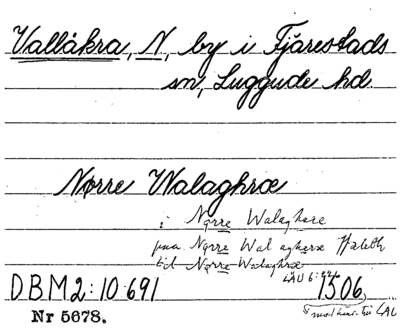 Vallåkra, N, by i Fjärestads
sn, Luggude hd.
Nørre Walaghræ
i Nørre Walaghere
paa Nørre Wal agheræ
til Nørre Walaghræ
LAU 6:
DBM2:10:691 1506,
Nr 5678. LAU